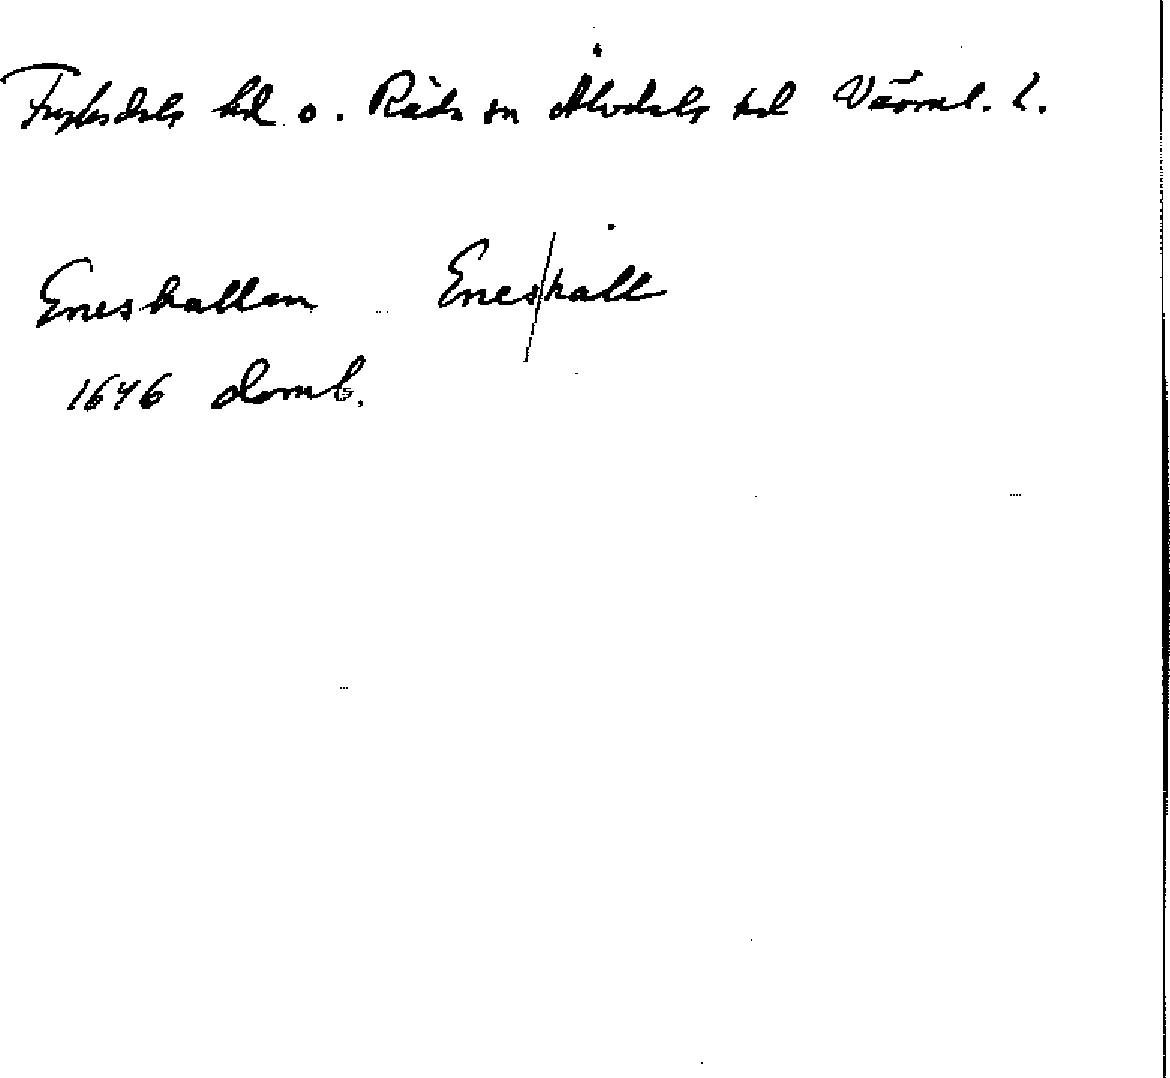 Fryksdals hd o. Råda sn Älvdals hd Värml. l.
Eneshallen Enes/hall
1646 domb.